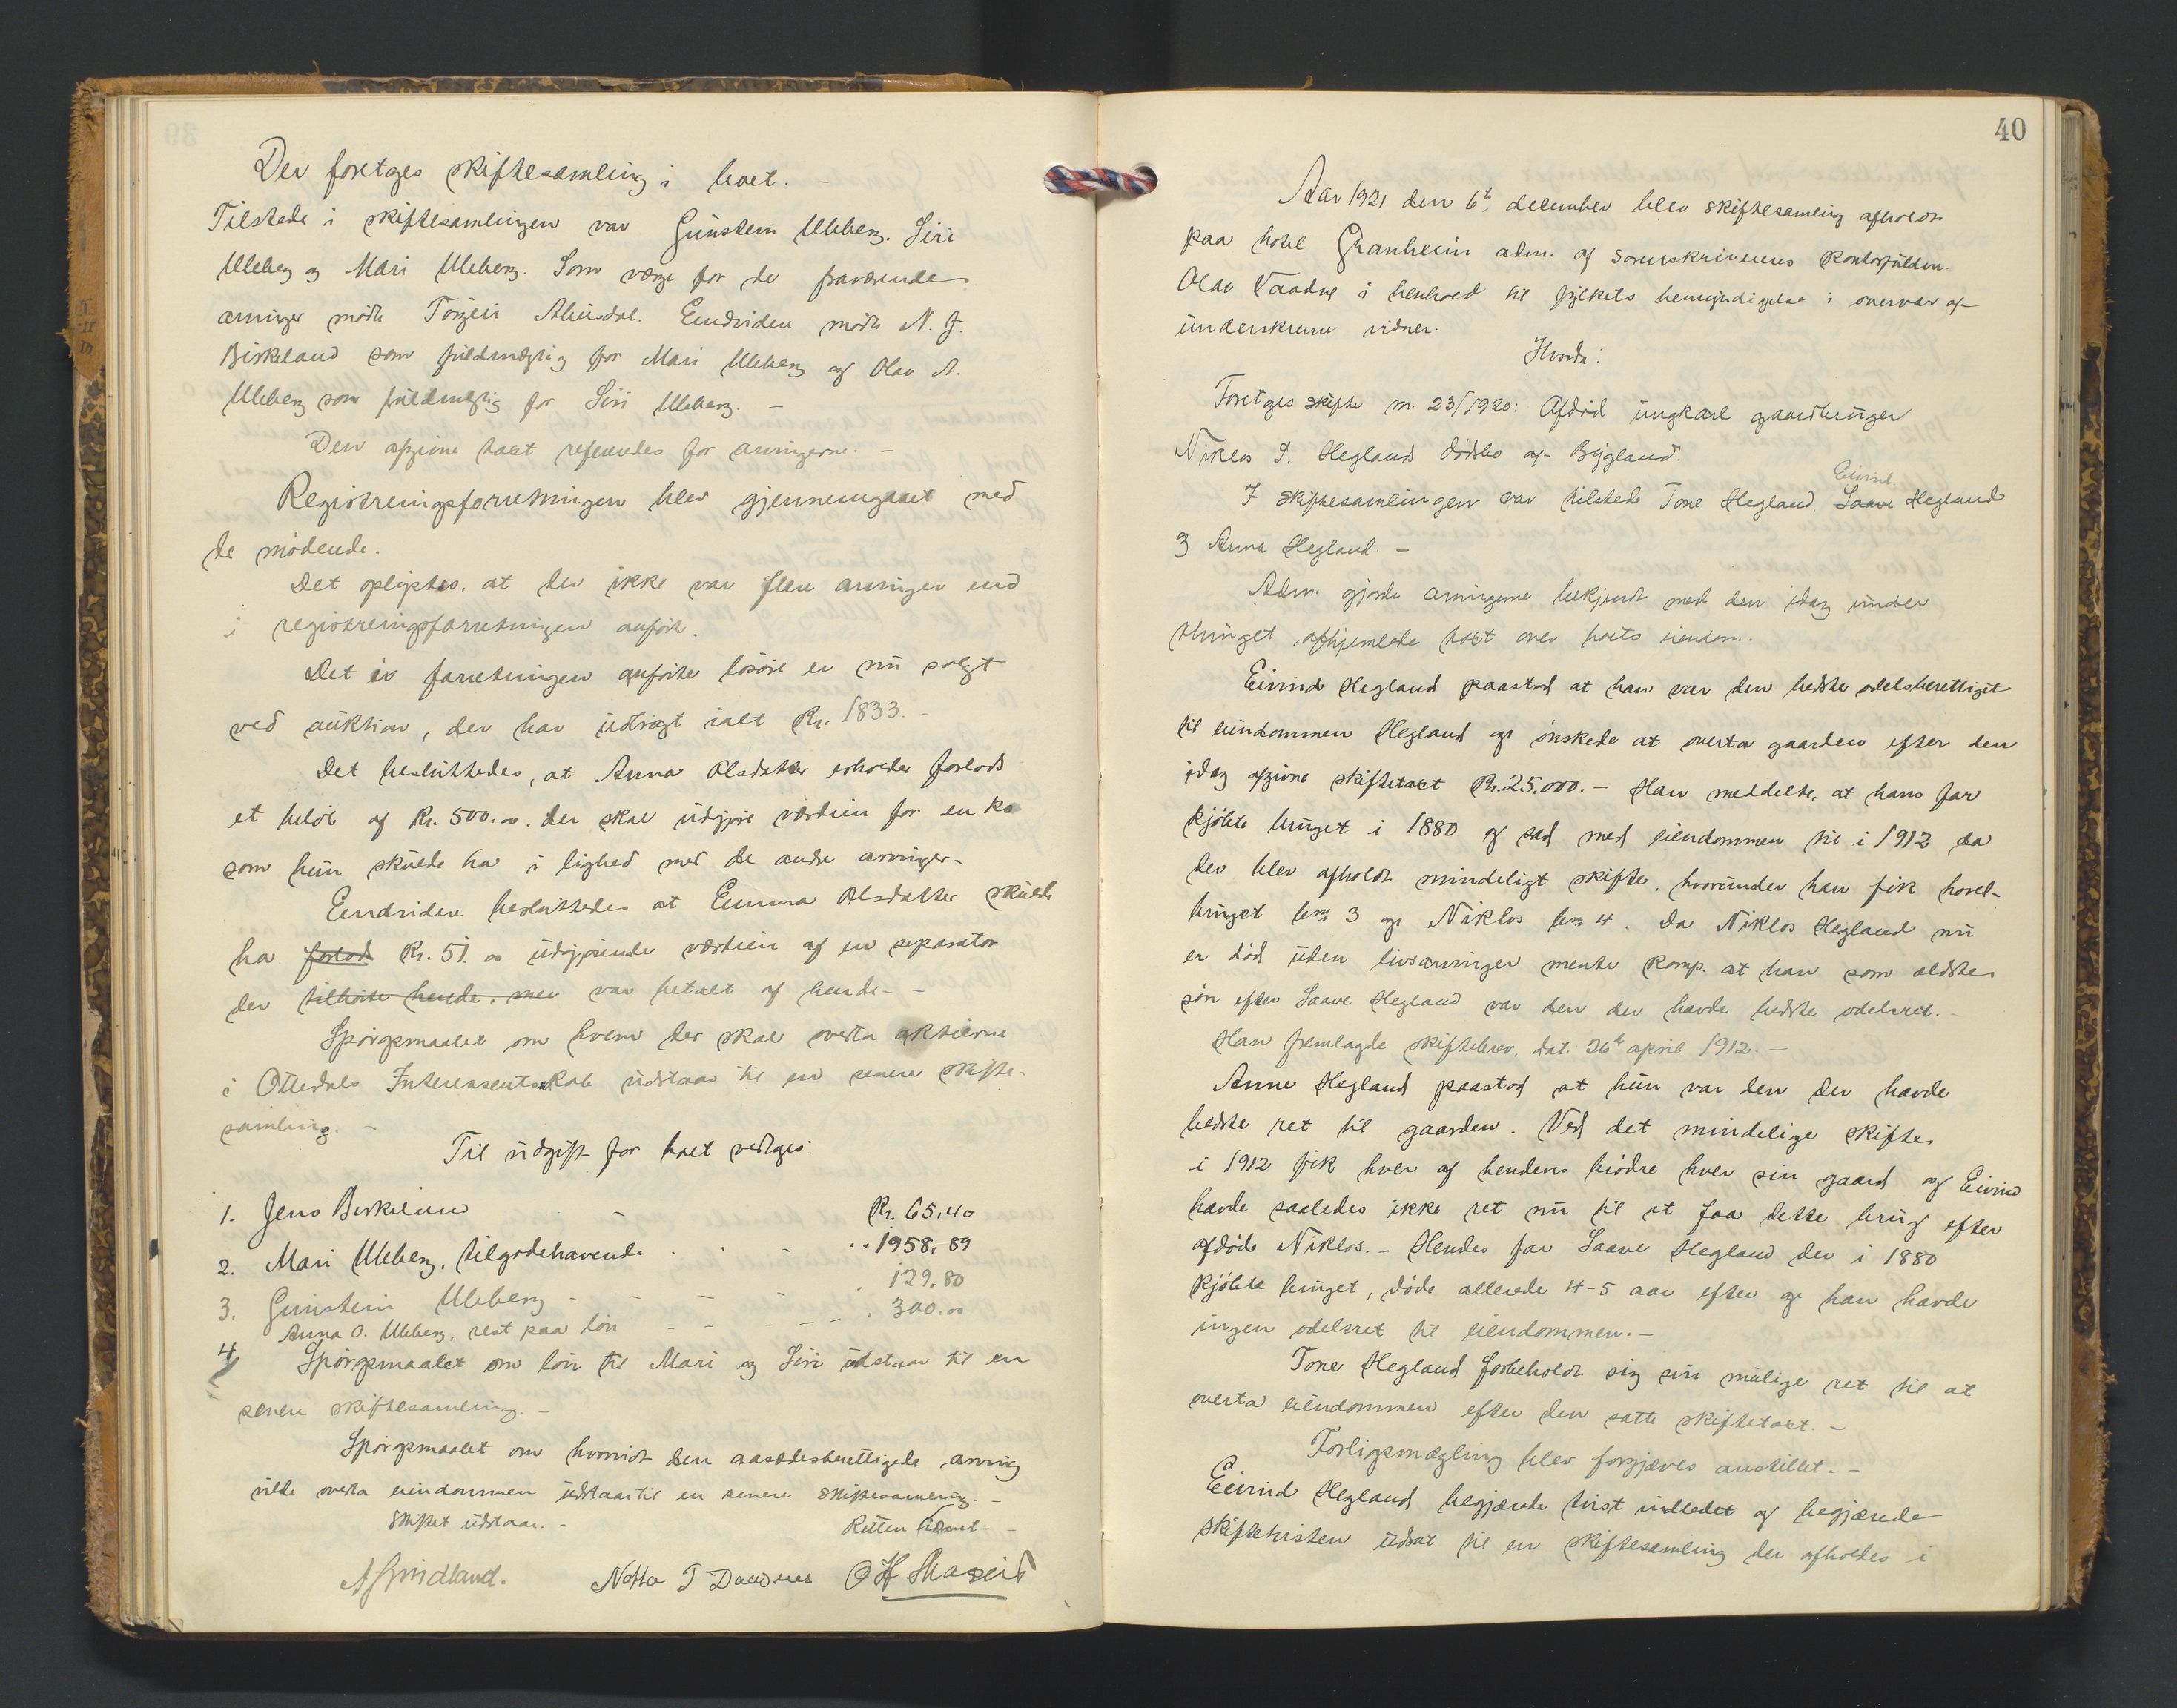 Der foretages skiftesamling i boet. –
Tilstede i skiftesamlingen var Gunstein Uleberg. Siri
Uleberg og Mari Uleberg. Som værge for de fraværende
arvinger mødte Torgeir Alensdal. Endvidere mødte N. J.
Birkeland som fuldmægtig for Mari Uleberg og Olav A.
Uleberg som fuldmægtig for Siri Uleberg. –
Den afgivne takst refereredes for arvingerne. –
Registreringsforretningen blev gjennemgaaet med
de mødende.
Det oplystes, at der ikke var flere arvinger end
i registreringsforretningen anført.
Det i forretningen anførte løsøre er nu solgt
ved auktion, der har udbragt ialt Kr. 1833. –
Det besluttedes, at Anna Olsdatter erholder forlods
et beløb af Kr. 500.00. der skal udgjøre værdien for en ko
som hun skulde ha i lighed med de andre arvinger. –
Endvidere besluttedes at Emma Olsdatter skulde
ha forlods Kr. 51.00 udgjørende værdien af en separator
der tilhørte hende, men var betalt af hende. –
Spørgsmaalet om hvem der skal overta aktierne
i Otterdals Interessentskab udstaar til en senere skifte-
samling. –
Til udgift for boet vedtages:
1. Jens Birkeland – Kr. 65.40
2. Mari Uleberg, tilgodehavende . . – .. 1958.89
3. Gunstein Uleberg – – – – . 129.80
4 Anna O. Uleberg, rest paa løn – – – – . 300.00
Spørgsmaalet om løn til Mari og Siri udstaar til en
senere skiftesamling. –
Spørgsmaalet om hvorvidt den aasædesberettigede arving
vilde overta eiendommen udstaar til en senere skiftesamling. –
Skiftet udstaar. – Retten hævet. –
A Grindland. Notto T Dausnes O H Skaseid
40
Aar 1921 den 6te december blev skiftesamling afholdt
paa hotel Granheim adm. af sorenskriverens kontorfuldm.
Olav Vaadne i henhold til fylkets bemyndigelse i overvær af
underskrevne vidner.
Hvorda:
Foretages skifte nr. 23/1920: Afdød ungkarl gaardbruger
Niklos S. Hegland dødsbo af Bygland.
I skiftesamlingen var tilstede Tone Hegland, Saave Hegland
Eivind
og Anna Hegland. –
Adm. gjorde arvingerne bekjendt med den idag under
thinget afhjemlede takst over boets eiendom.
Eivind Hegland paastod at han var den bedste odelsberettiget
til eiendommen Hegland og ønskede at overta gaarden efter den
idag afgivne skiftetakst Kr. 25.000. – Han meddelte, at hans far
kjøbte bruget i 1880 og sad med eiendommen til i 1912 da
der blev afholdt mindeligt skifte, hvorunder han fik hovel-
bruget brn 3 og Niklos brn 4. Da Niklos Hegland nu
er død uden livsarvinger mente komp. at han som ældste
søn efter Saave Hegland var den der havde bedste odelsret. –
Han fremlagde skiftebrev, dat. 26de april 1912. –
Anne Hegland paastod at hun var den der havde
bedste ret til gaarden. Ved det mindelige skifte
i 1912 fik hver af hendes brødre hver sin gaard og Eivind
havde saaledes ikke ret nu til at faa dette brug efter
afdøde Niklos. – Hendes far Saave Hegland der i 1880
kjøbte bruget, døde allerede 4-5 aar efter og han havde
ingen odelsret til eiendommen. –
Tone Hegland forbeholdt sig sin mulige ret til at
overta eiendommen efter den satte skiftetakst. –
Forligsmægling blev forgjæves anstillet. –
Eivind Hegland begjærede tvist indledet og begjærede
skiftetvisten udsat til en skiftesamling der afholdes i